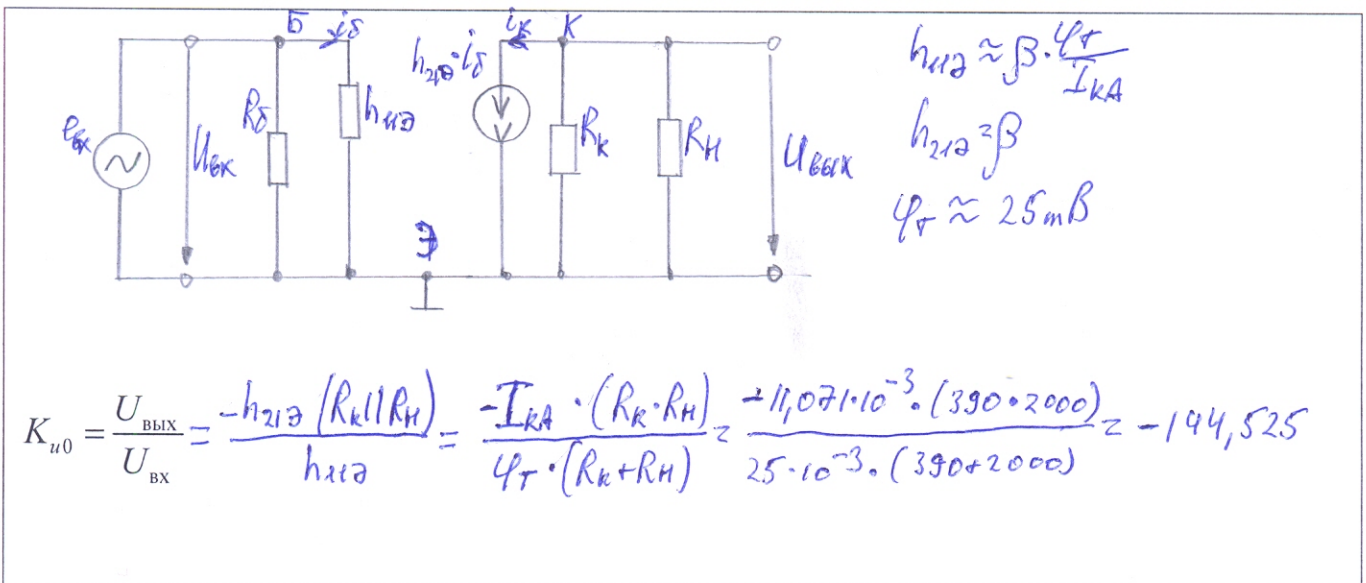 Б iб
iк К
h21э·iб
eвх
Uвх
Rб
h11э
Rк
Rн
Uвых
Э
h11э ≈ β · φт / IкА
h21э = β
φт ≈ 25mВ
Kи0 = Uвых / Uвх = -h21э (Rк || Rн) / h11э = -IкА · (Rк · Rн) / φт · (Rк + Rн) = -11,071·10⁻³ · (390 · 2000) / 25·10⁻³ · (390 + 2000) = -144,525